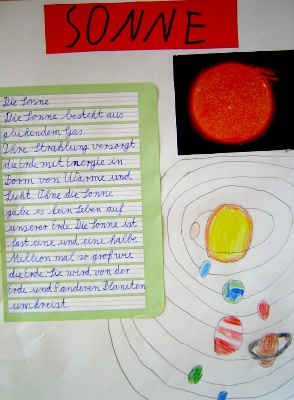 SONNE
Die Sonne
Die Sonne besteht aus
glühendem Gas.
Ihre Strahlung versorgt
die Erde mit Energie in
Form von Wärme und
Licht. Ohne die Sonne
gäbe es kein Leben auf
unserer Erde. Die Sonne ist
fast eine und eine halbe
Million mal so groß wie
die Erde. Sie wird von der
Erde und 8 anderen Planeten
umkreist.